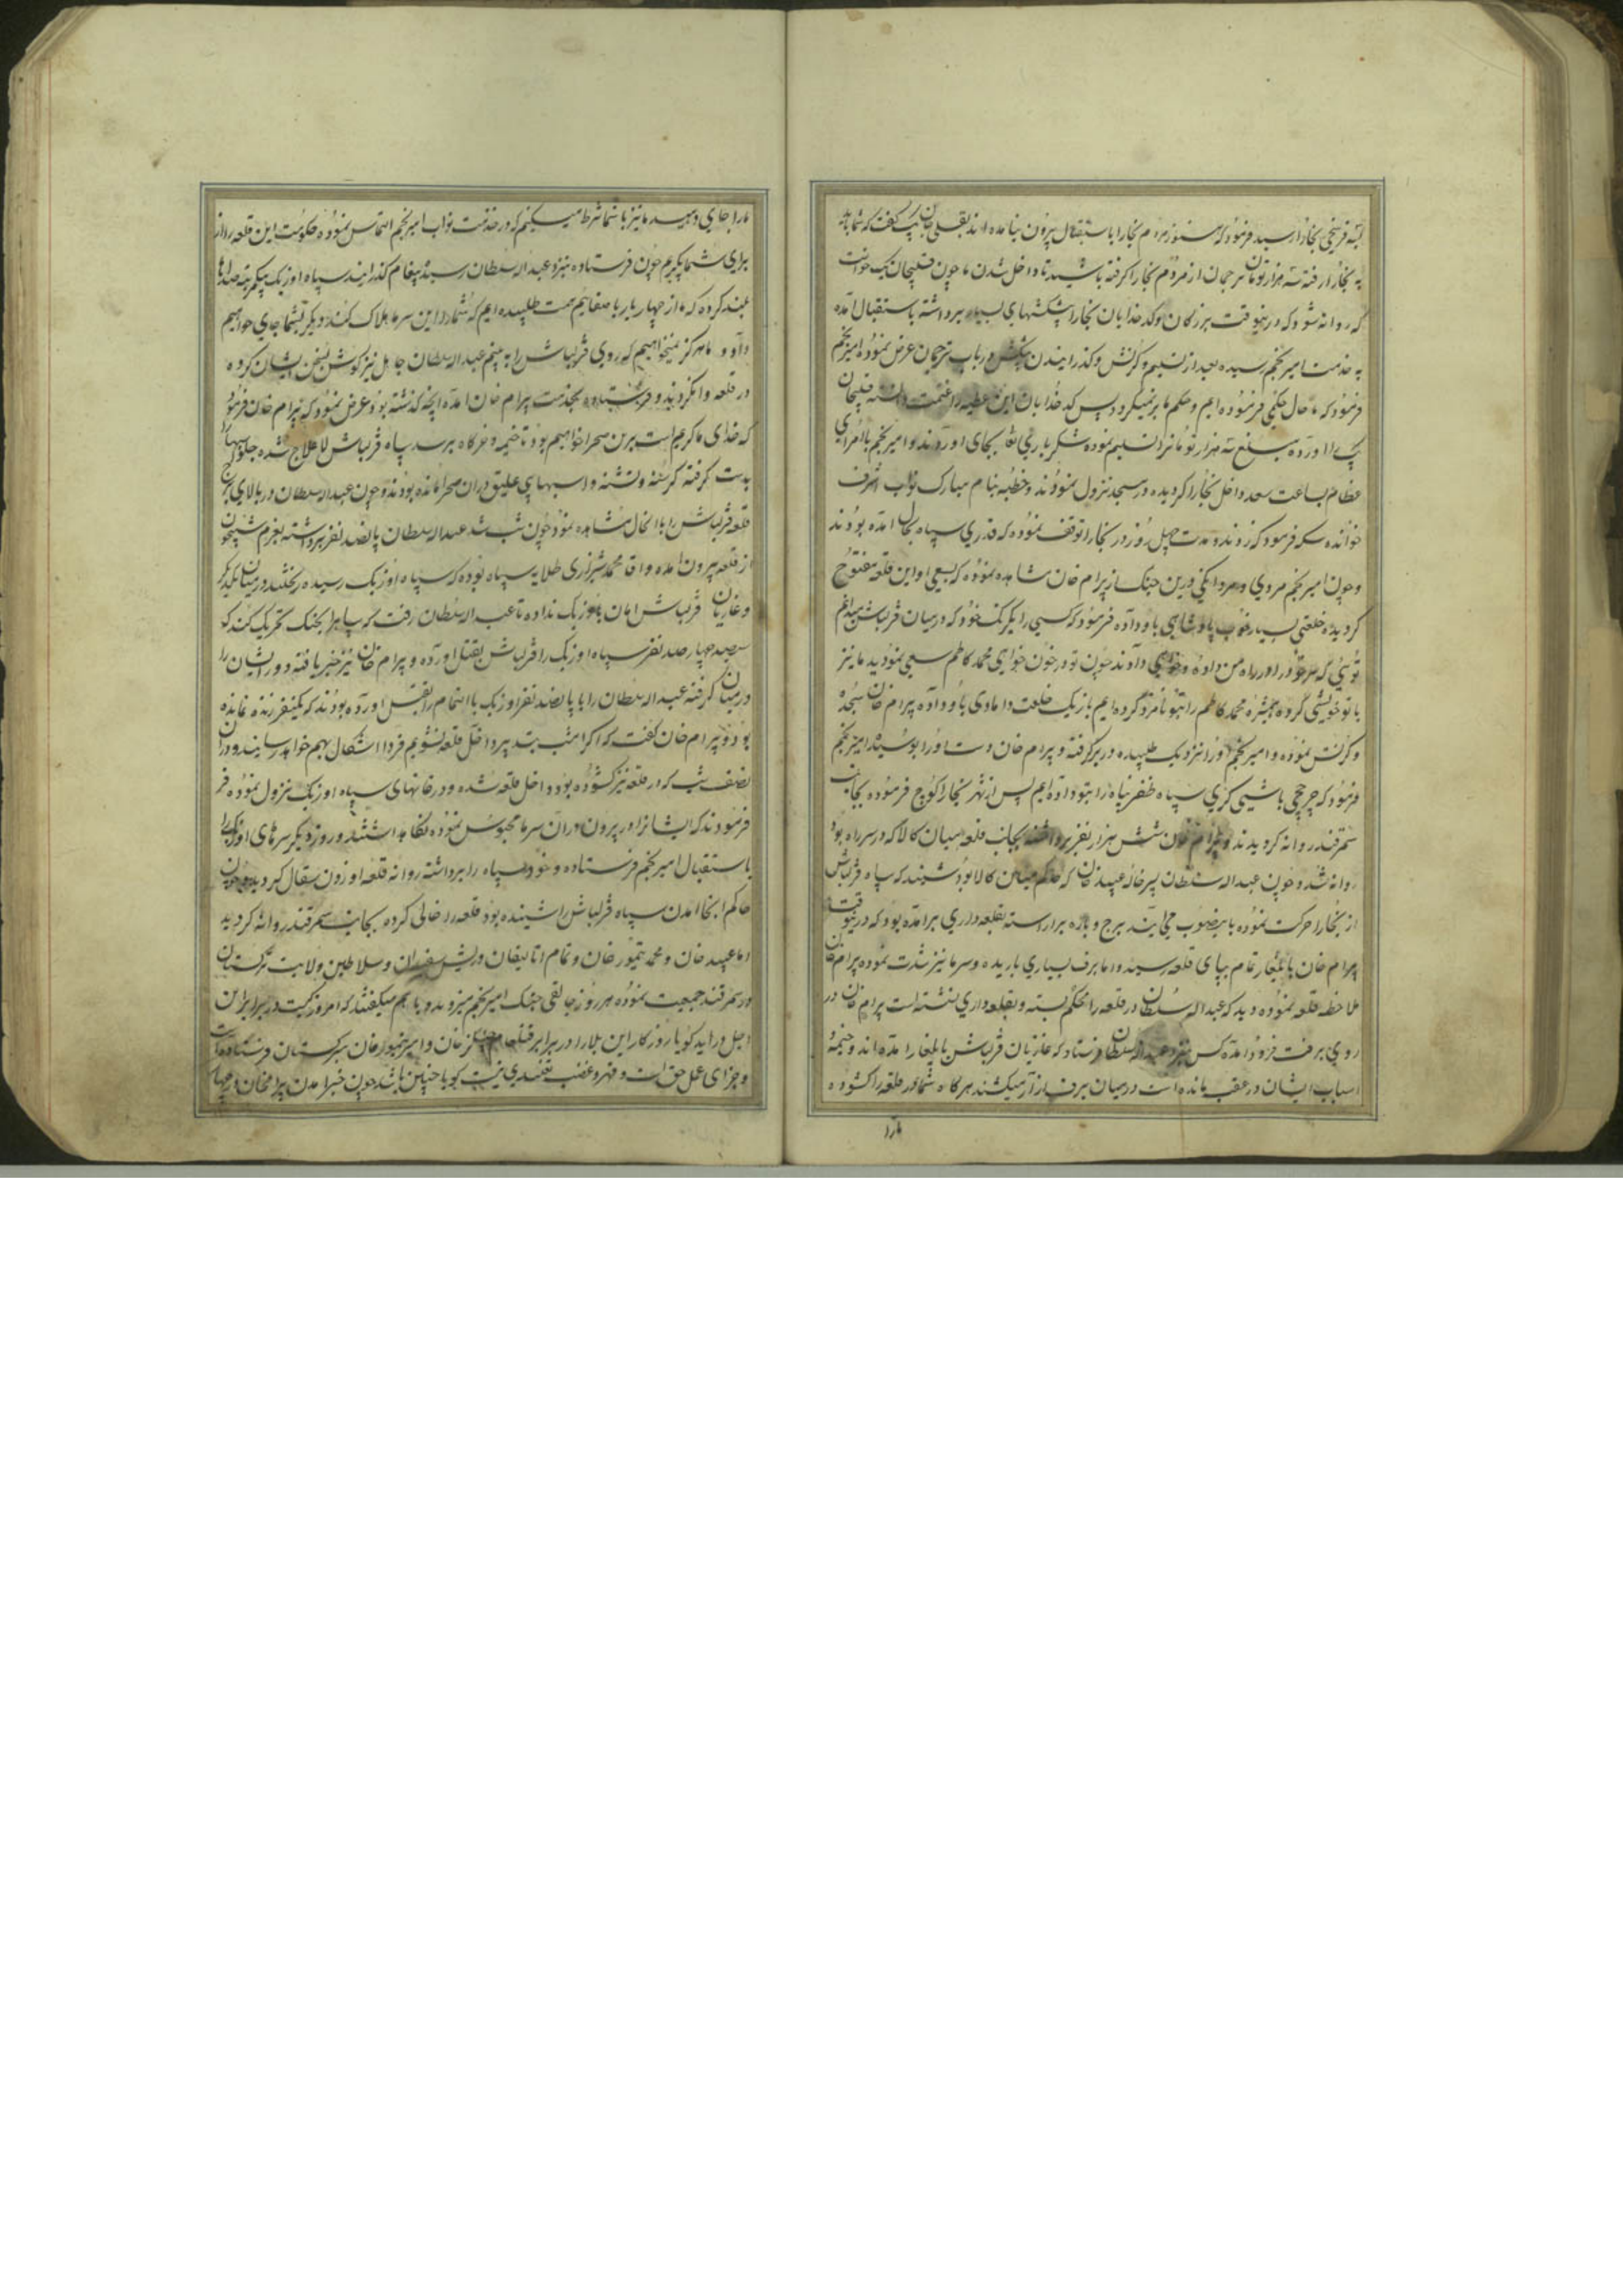 به یک فرسخی بخارا رسید فرمود که هنوز مردم بخارا باستقبال بیرون نیامده اند بقلی جان بیک گفت که شما باید
به بخارا رفته سه هزار تومان ترجمان از مردم بخارا گرفته باشید تا داخل شدن ما چون قلیجان بیک خواست
که روانه شود که درینوقت بزرگان و کدخدایان بخارا پیشکشهای بسیار برداشته باستقبال آمده
به خدمت امیر نجم رسیده بعد از تسلیم و کرنش و گذرانیدن پیشکش در باب ترجمان عرض نموده امیر نجم
فرمود که ما حال حکمی فرموده ایم و حکم ما بر نمیگردد پس کدخدایان این عطیه را غنیمت دانسته قلیجان
بیک را آورده مبلغ سه هزار تومانرا تسلیم نموده شکر باری تعالی بجای آوردند و امیر نجم با امرای
عظام بساعت سعد داخل بخارا گردیده در مسجد نزول نمودند و خطبه بنام مبارک نواب اشرف
خوانده سکه فرمود که زدند و مدت چهل روز در بخارا توقف نموده که قدری سپاه بحال آمده بودند
و چون امیر نجم مروی و مردانگی درین جنگ از بیرام خان مشاهده نموده که بسعی او این قلعه مفتوح
گردیده خلعتی بسیار خوب پادشاهی باو داده فرمود که کسی را یکرنگ خود که درمیان قزلباش میدانم
توئی که سر خود را در راه من داده و خواهی دادند چون تو در خون خواهی محمد کاظم سعی نمودید ما نیز
با تو خویشی کرده همشیره محمد کاظم را بتو نامزد کرده ایم باز یک خلعت دامادی باو داده بیرام خان سجده
و کرنش نموده و امیر نجم او را نزدیک طلبیده در بر گرفته و بیرام خان دست او را بوسیده امیر نجم
فرمود که چرخچی باشی گری سپاه ظفر پناه را بتو داده ایم پس از شهر بخارا کوچ فرموده بجانب
سمرقند روانه گردیدند و بیرام خان شش هزار نفر برداشته بجانب قلعه میان کالا که در سر راه بود
روانه شد و چون عبدالله سلطان پسر خاله عبید خان که حاکم میان کالا بود شنید که سپاه قزلباش
از بخارا حرکت نموده باینصوب می آیند برج و باره بر آراسته بقلعه داری بر آمده بود که درینوقت
بیرام خان بایلغار تمام بپای قلعه رسید و اما برف بسیاری باریده و سرما نیز شدت نموده بیرام خان
ملاحظه قلعه نموده دید که عبدالله سلطان در قلعه را محکم بسته و بقلعه داری نشسته است بیرام خان در
روی برف فرود آمده کس بنزد عبدالله سلطان فرستاد که غازیان قزلباش بایلغار آمده اند و خیمه
اسباب ایشان در عقب مانده است در میان برف آزار میکشند هر گاه شما در قلعه را گشوده
مارا
مارا جای دهید ما نیز با شما شرط میکنیم که در خدمت نواب امیر نجم التماس نموده حکومت این قلعه را از
برای شما بگیریم چون فرستاده بنزد عبدالله سلطان رسید پیغام گذرانید سپاه اوزبک بیکمرتبه صداها
بلند کرده که ما از چهار یار با صفا همت طلبیده ایم که شما را در این سرما هلاک کنند دیگر بشما جای خواهیم
داد و ما هرگز نمیخواهیم که روی قزلباش را به بینیم عبدالله سلطان جاهل نیز گوش بسخن ایشان کرده
در قلعه وا نکردید و فرستاده بخدمت بیرام خان آمده آنچه گذشته بود عرض نمود که بیرام خان فرمود
که خدای ما کریم است برین صحرا خواهیم بود تا خیمه و خرگاه برسد سپاه قزلباش لاعلاج شده جلو اسبها را
بدست گرفته گرسنه و تشنه و اسبها بی علیق در آن صحرا مانده بودند و چون عبدالله سلطان در بالای برج
قلعه قزلباش را باانحال مشاهده نمود چون شب شد عبدالله سلطان پانصد نفر برداشته بعزم شبیخون
از قلعه بیرون آمده و آقا محمد شیرازی طلایه سپاه بوده که سپاه اوزبک رسیده ریختند در میان یکدیگر
و غازیان قزلباش امان باوزبک نداده تا عبدالله سلطان رفت که سپاه را بجنگ تحریک کند که
سیصد چهار صد نفر سپاه اوزبک را قزلباش بقتل آورده و بیرام خان نیز خبر یافته دور ایشان را
درمیان گرفته عبدالله سلطان را با پانصد نفر اوزبک بالتمام بقتل آورده بودند که یکنفر زنده نمانده
بود و بیرام خان گفت که اگر امشب بتدبیر داخل قلعه نشویم فردا اشکال بهم خواهد رسانید و در آن
نصف شب که در قلعه نیز گشوده بود داخل قلعه شده و در خانهای سپاه اوزبک نزول نموده
فرمودند که ایشانرا در بیرون در آن سرما محبوس نموده نگاه داشتند و روز دیگر سرهای اوزبک را
باستقبال امیر نجم فرستاده و خود سپاه را برداشته روانه قلعه اوزون سقال گردید و چون
حاکم آنجا آمدن سپاه قزلباش را شنیده بود قلعه را خالی کرده بجانب سمرقند روانه گردید
اما عبید خان و محمد تیمور خان و تمام اتالیقان و ریش سفیدان و سلاطین ولایت ترکستان
در سمرقند جمعیت نموده هر روز جانقی جنگ امیر نجم میزدند و با هم میگفتند که امروز کیست در برابر این
اجل در آید گویا روزگار این بلا را در برابر قتل عام چنگیز خان و امیر تیمور خان بترکستان فرستاده است
و جزای عمل حق است و قهر و غضب گویا چنین باشد چون خبر آمدن بیرام خان و